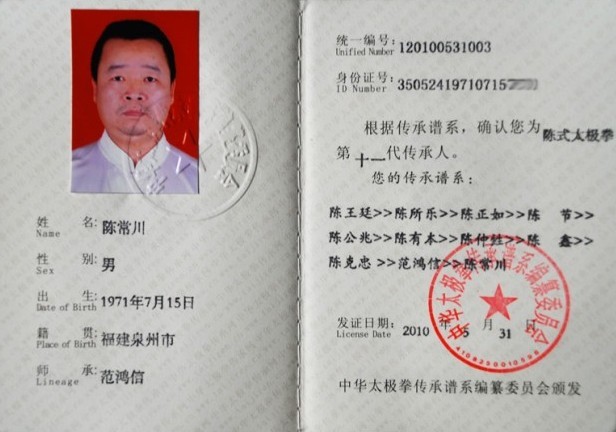 姓 名: 陈常川
Name
性 别: 男
Sex
出 生: 1971年7月15日
Date of Birth
籍 贯: 福建泉州市
Place of Birth
师 承: 范鸿信
Lineage
统一编号: 120100531003
Unified Number
身份证号: 35052419710715
ID Number
根据传承谱系，确认您为 陈式太极拳
第 十一 代传承人。
您的传承谱系:
陈王廷>>陈所乐>>陈正如>>陈 节>>
陈公兆>>陈有本>>陈仲甡>>陈 鑫>>
陈克忠>>范鸿信>>陈常川
中华太极拳传承谱系编纂委员会
发证日期: 2010 年 5 月 31 日
License Date
中华太极拳传承谱系编纂委员会颁发